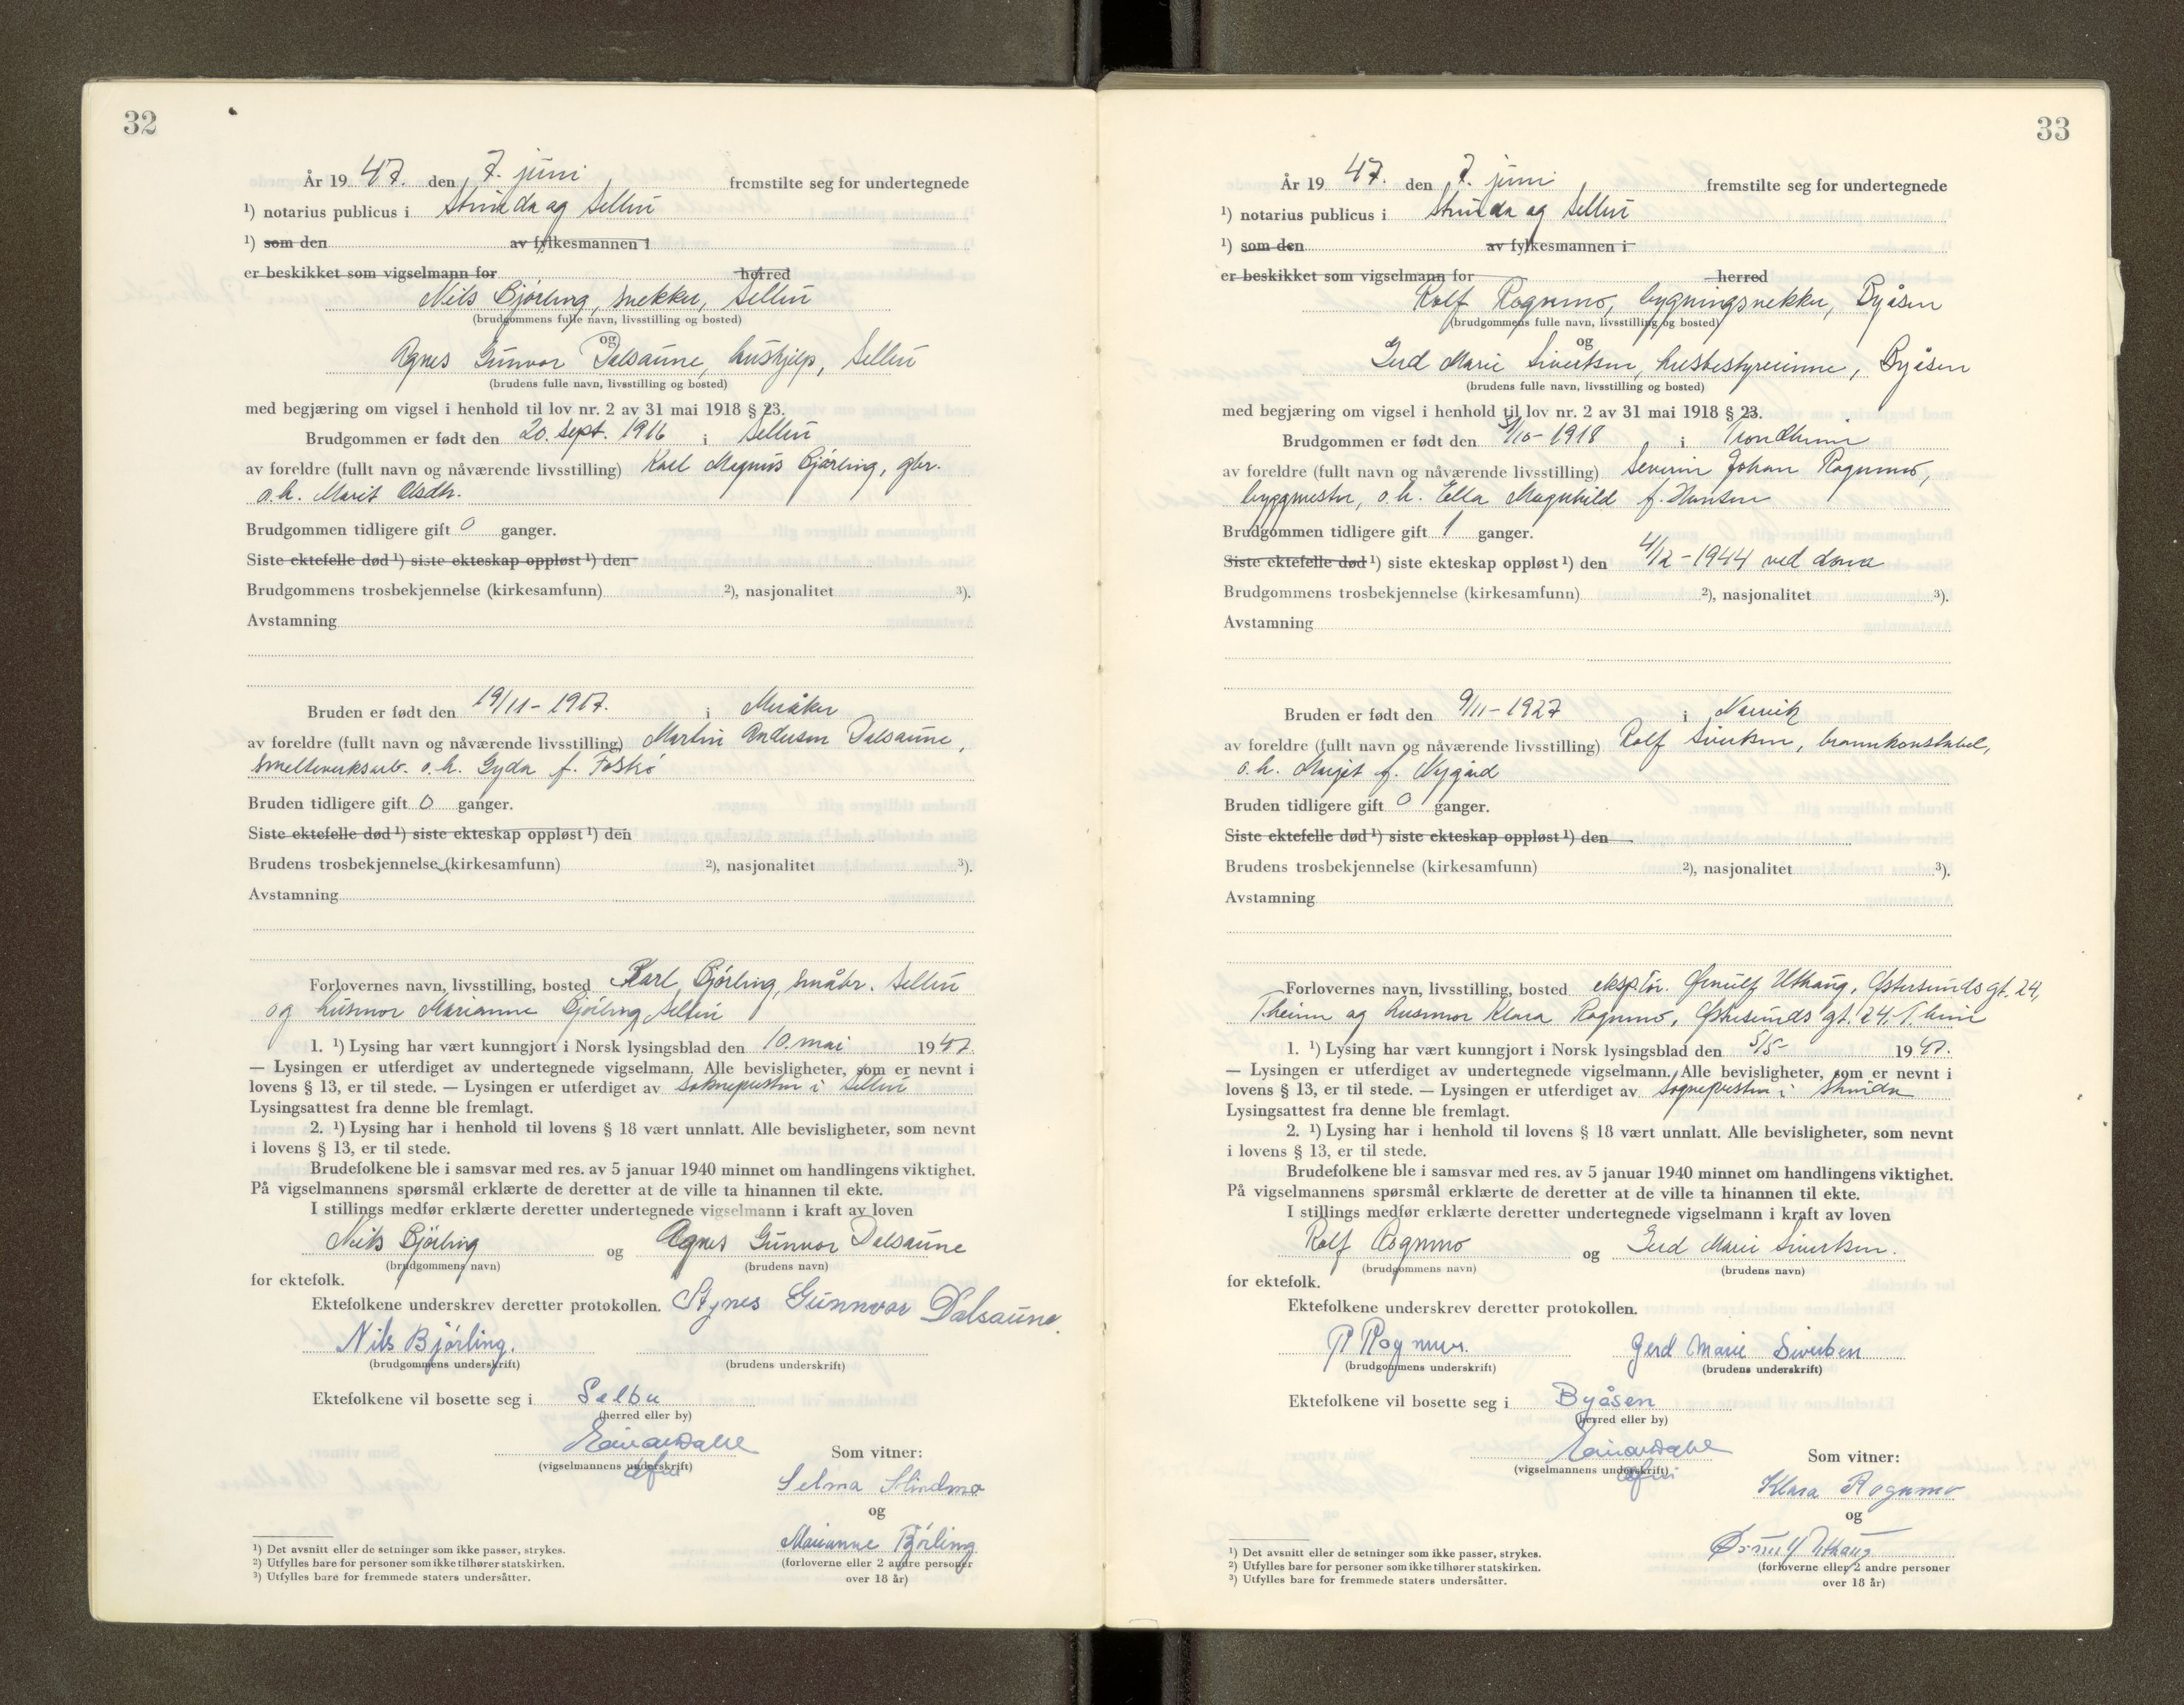 32
År 19 47. den 7. juni fremstilte seg for undertegnede
¹) notarius publicus i Strinda og Selbu
¹) som den av fylkesmannen i
er beskikket som vigselmann for herred
Nils Bjørling, snekker, Selbu
(brudgommens fulle navn, livsstilling og bosted)
og
Agnes Gunvor Dalsaune, hushjelp, Selbu
(brudens fulle navn, livsstilling og bosted)
med begjæring om vigsel i henhold til lov nr. 2 av 31 mai 1918 § 23.
Brudgommen er født den 20. sept. 1916 i Selbu
av foreldre (fullt navn og nåværende livsstilling) Karl Magnus Bjørling, gbr.
o.h. Marit Olsdtr.
Brudgommen tidligere gift 0 ganger.
Siste ektefelle død ¹) siste ekteskap oppløst ¹) den
Brudgommens trosbekjennelse (kirkesamfunn) ²), nasjonalitet ³).
Avstamning
Bruden er født den 19/11 - 1917. i Meråker
av foreldre (fullt navn og nåværende livsstilling) Martin Andersen Dalsaune,
smelteverksarb. o.h. Gyda f.
Bruden tidligere gift 0 ganger.
Siste ektefelle død ¹) siste ekteskap oppløst ¹) den
Brudens trosbekjennelse (kirkesamfunn) ²), nasjonalitet ³).
Avstamning
Forlovernes navn, livsstilling, bosted Karl Bjørling, småbr. Selbu
og husmor Marianne Bjørling, Selbu
1. ¹) Lysing har vært kunngjort i Norsk lysingsblad den 10. mai 19 47.
— Lysingen er utferdiget av undertegnede vigselmann. Alle bevisligheter, som er nevnt i
lovens § 13, er til stede. — Lysingen er utferdiget av soknepresten i Selbu
Lysingsattest fra denne ble fremlagt.
2. ¹) Lysing har i henhold til lovens § 18 vært unnlatt. Alle bevisligheter, som nevnt
i lovens § 13, er til stede.
Brudefolkene ble i samsvar med res. av 5 januar 1940 minnet om handlingens viktighet.
På vigselmannens spørsmål erklærte de deretter at de ville ta hinannen til ekte.
I stillings medfør erklærte deretter undertegnede vigselmann i kraft av loven
Nils Bjørling og Agnes Gunvor Dalsaune
(brudgommens navn) (brudens navn)
for ektefolk.
Ektefolkene underskrev deretter protokollen. Agnes Gunnvor Dalsaune.
Nils Bjørling.
(brudgommens underskrift) (brudens underskrift)
Ektefolkene vil bosette seg i Selbu
(herred eller by)
Som vitner:
(vigselmannens underskrift)
Selma
og
Marianne Bjørling
(forloverne eller 2 andre personer
over 18 år)
¹) Det avsnitt eller de setninger som ikke passer, strykes.
²) Utfylles bare for personer som ikke tilhører statskirken.
³) Utfylles bare for fremmede staters undersåtter.
33
År 19 47. den 7. juni fremstilte seg for undertegnede
¹) notarius publicus i Strinda og Selbu
¹) som den av fylkesmannen i
er beskikket som vigselmann for herred
Rolf Rognmo, bygningsnekker, Byåsen
(brudgommens fulle navn, livsstilling og bosted)
og
Gerd Marie Sivertsen, husbestyrerinne, Byåsen
(brudens fulle navn, livsstilling og bosted)
med begjæring om vigsel i henhold til lov nr. 2 av 31 mai 1918 § 23.
Brudgommen er født den /10 - 1918 i Trondheim
av foreldre (fullt navn og nåværende livsstilling) Severin Johan Rognmo,
byggmester, o.h. Ella Magnhild f. Hansen
Brudgommen tidligere gift 1 ganger.
Siste ektefelle død ¹) siste ekteskap oppløst ¹) den 4/12 - 1944 ved dom
Brudgommens trosbekjennelse (kirkesamfunn) ²), nasjonalitet ³).
Avstamning
Bruden er født den 9/11 - 1927 i Narvik
av foreldre (fullt navn og nåværende livsstilling) Rolf Sivertsen, brannkonstabel,
o.h. Marjit f. Nygård
Bruden tidligere gift 0 ganger.
Siste ektefelle død ¹) siste ekteskap oppløst ¹) den
Brudens trosbekjennelse (kirkesamfunn) ²), nasjonalitet ³).
Avstamning
Forlovernes navn, livsstilling, bosted eksp.før. Ørnulf Uthaug, Østersunds gt. 24,
T.heim og husmor Klara Rognmo, Østersunds gt. 24. T.heim
1. ¹) Lysing har vært kunngjort i Norsk lysingsblad den 5/5- 19 47.
— Lysingen er utferdiget av undertegnede vigselmann. Alle bevisligheter, som er nevnt i
lovens § 13, er til stede. — Lysingen er utferdiget av sognepresten i Strinda
Lysingsattest fra denne ble fremlagt.
2. ¹) Lysing har i henhold til lovens § 18 vært unnlatt. Alle bevisligheter, som nevnt
i lovens § 13, er til stede.
Brudefolkene ble i samsvar med res. av 5 januar 1940 minnet om handlingens viktighet.
På vigselmannens spørsmål erklærte de deretter at de ville ta hinannen til ekte.
I stillings medfør erklærte deretter undertegnede vigselmann i kraft av loven
Rolf Rognmo og Gerd Marie Sivertsen.
(brudgommens navn) (brudens navn)
for ektefolk.
Ektefolkene underskrev deretter protokollen.
R Rognmo. Gerd Marie Sivertsen
(brudgommens underskrift) (brudens underskrift)
Ektefolkene vil bosette seg i Byåsen
(herred eller by)
Som vitner:
(vigselmannens underskrift)
Klara Rognmo
og
Ørnulf Uthaug
(forloverne eller 2 andre personer
over 18 år)
¹) Det avsnitt eller de setninger som ikke passer, strykes.
²) Utfylles bare for personer som ikke tilhører statskirken.
³) Utfylles bare for fremmede staters undersåtter.